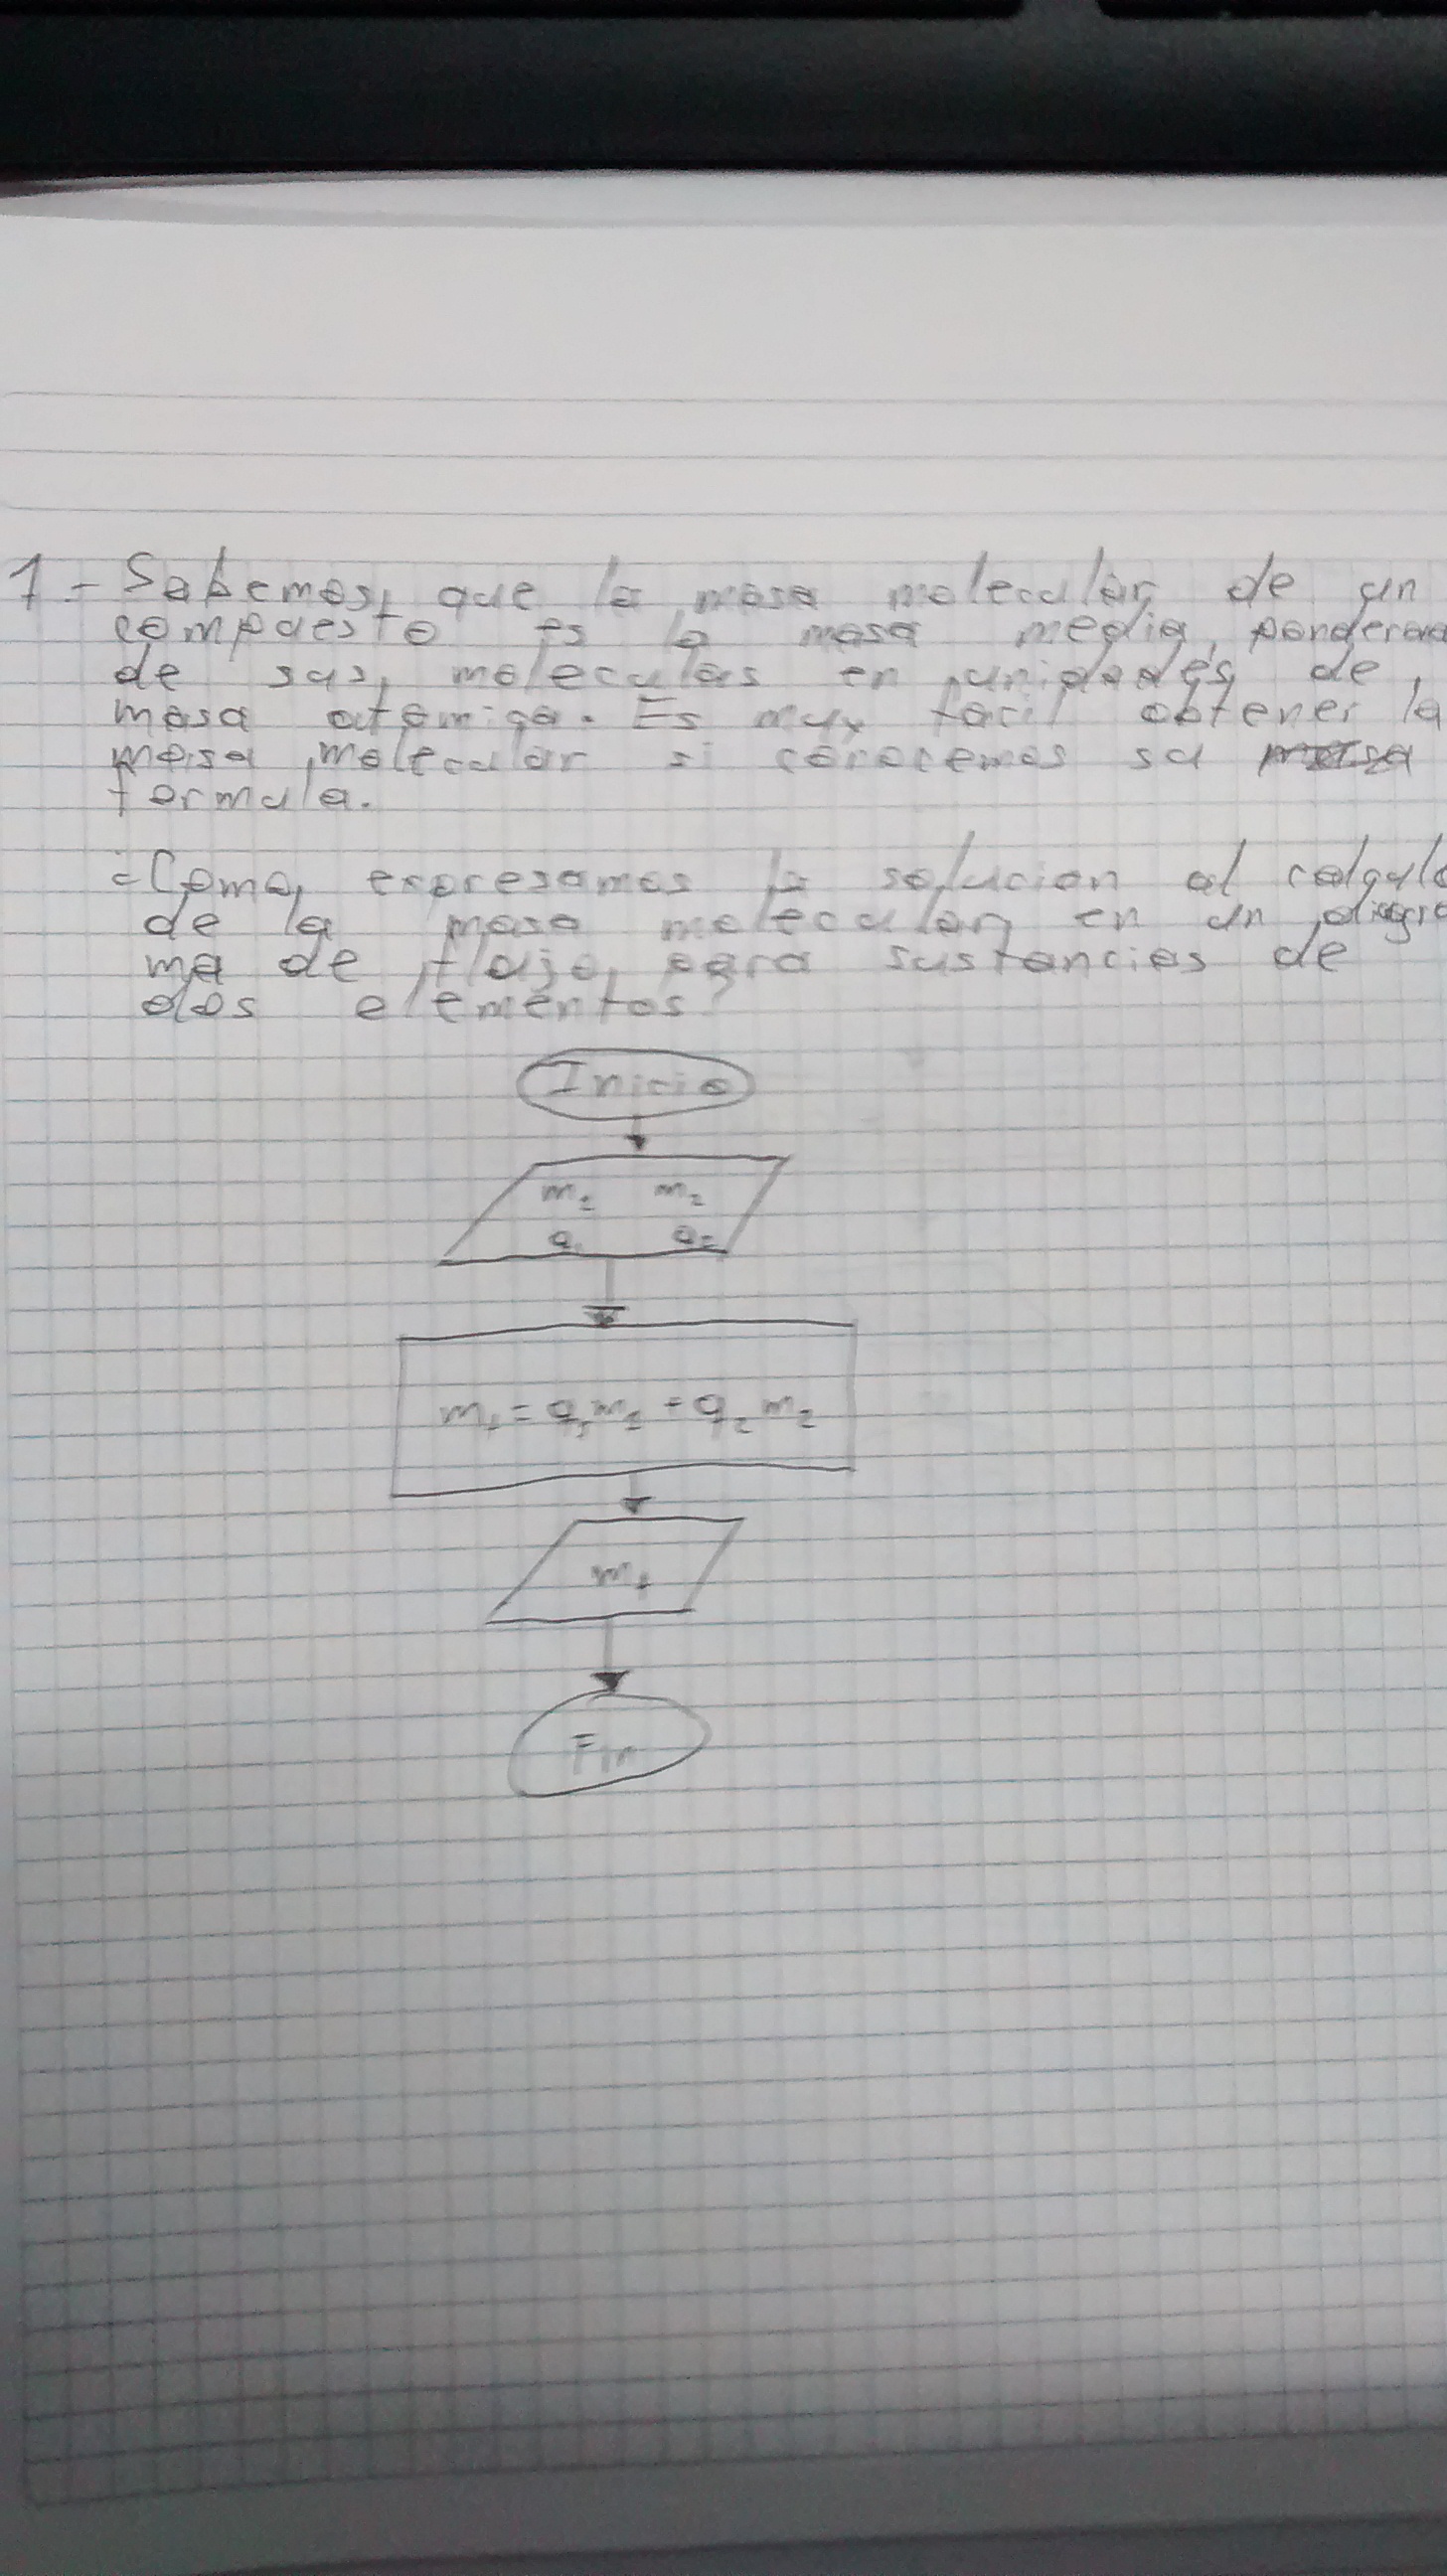 1- Sabemos, que la masa molecular de un
compuesto es la masa media, ponderad
de sus, moleculas en unidades de,
masa atomica. Es muy facil obtener la
masa molecular si conocemos su masa
formula.
¿Como, expresamos la solucion al calculo
de la masa molecular, en un diagra
ma de flujo, para sustancias de
dos elementos?
Inicio
m₁ m₂
a₁ a₂
= a₁m₁ + a₂m₂
Fin